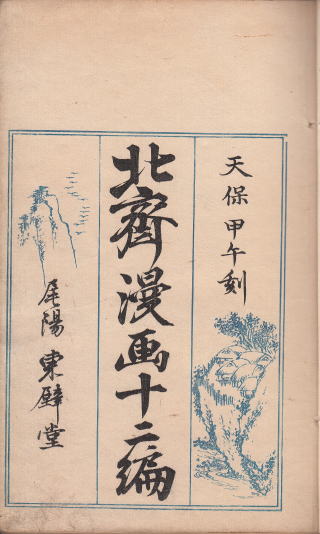 天保甲午刻
北齋漫画十二編
尾陽 東壁堂